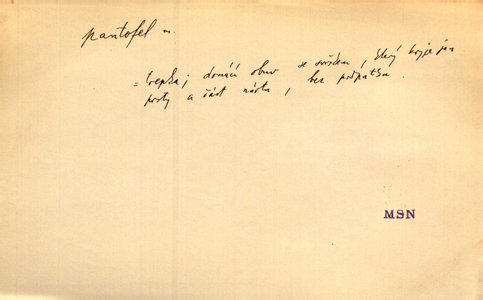 pantofel m.
= trepka; domácí obuv se svrškem, který kryje jen
prsty a část nártu, bez podpatku.
MSN